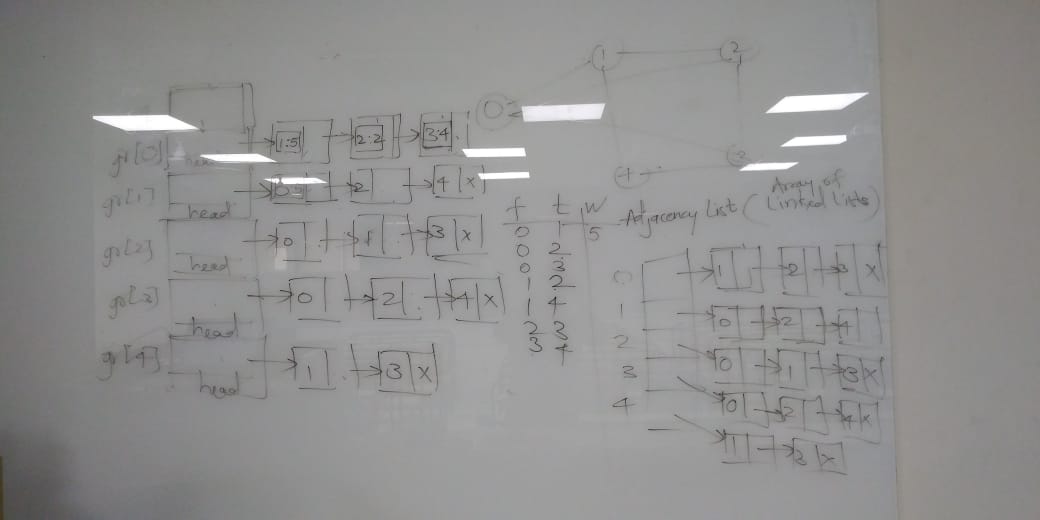 0 1 2
3 4
gr[0] head 1:5 2:2 3:4
gr[1] head 0 2 4 x
gr[2] head 0 1 3 x
gr[3] head 0 2 4 x
gr[4] head 1 3 x
f t w
0 1 5
0 2
0 3
1 2
1 4
2 3
3 4
Adjacency List (Array of Linked Lists)
0 1 2 3 x
1 0 2 4
2 0 1 3 x
3 0 2 4 x
4 1 3 x